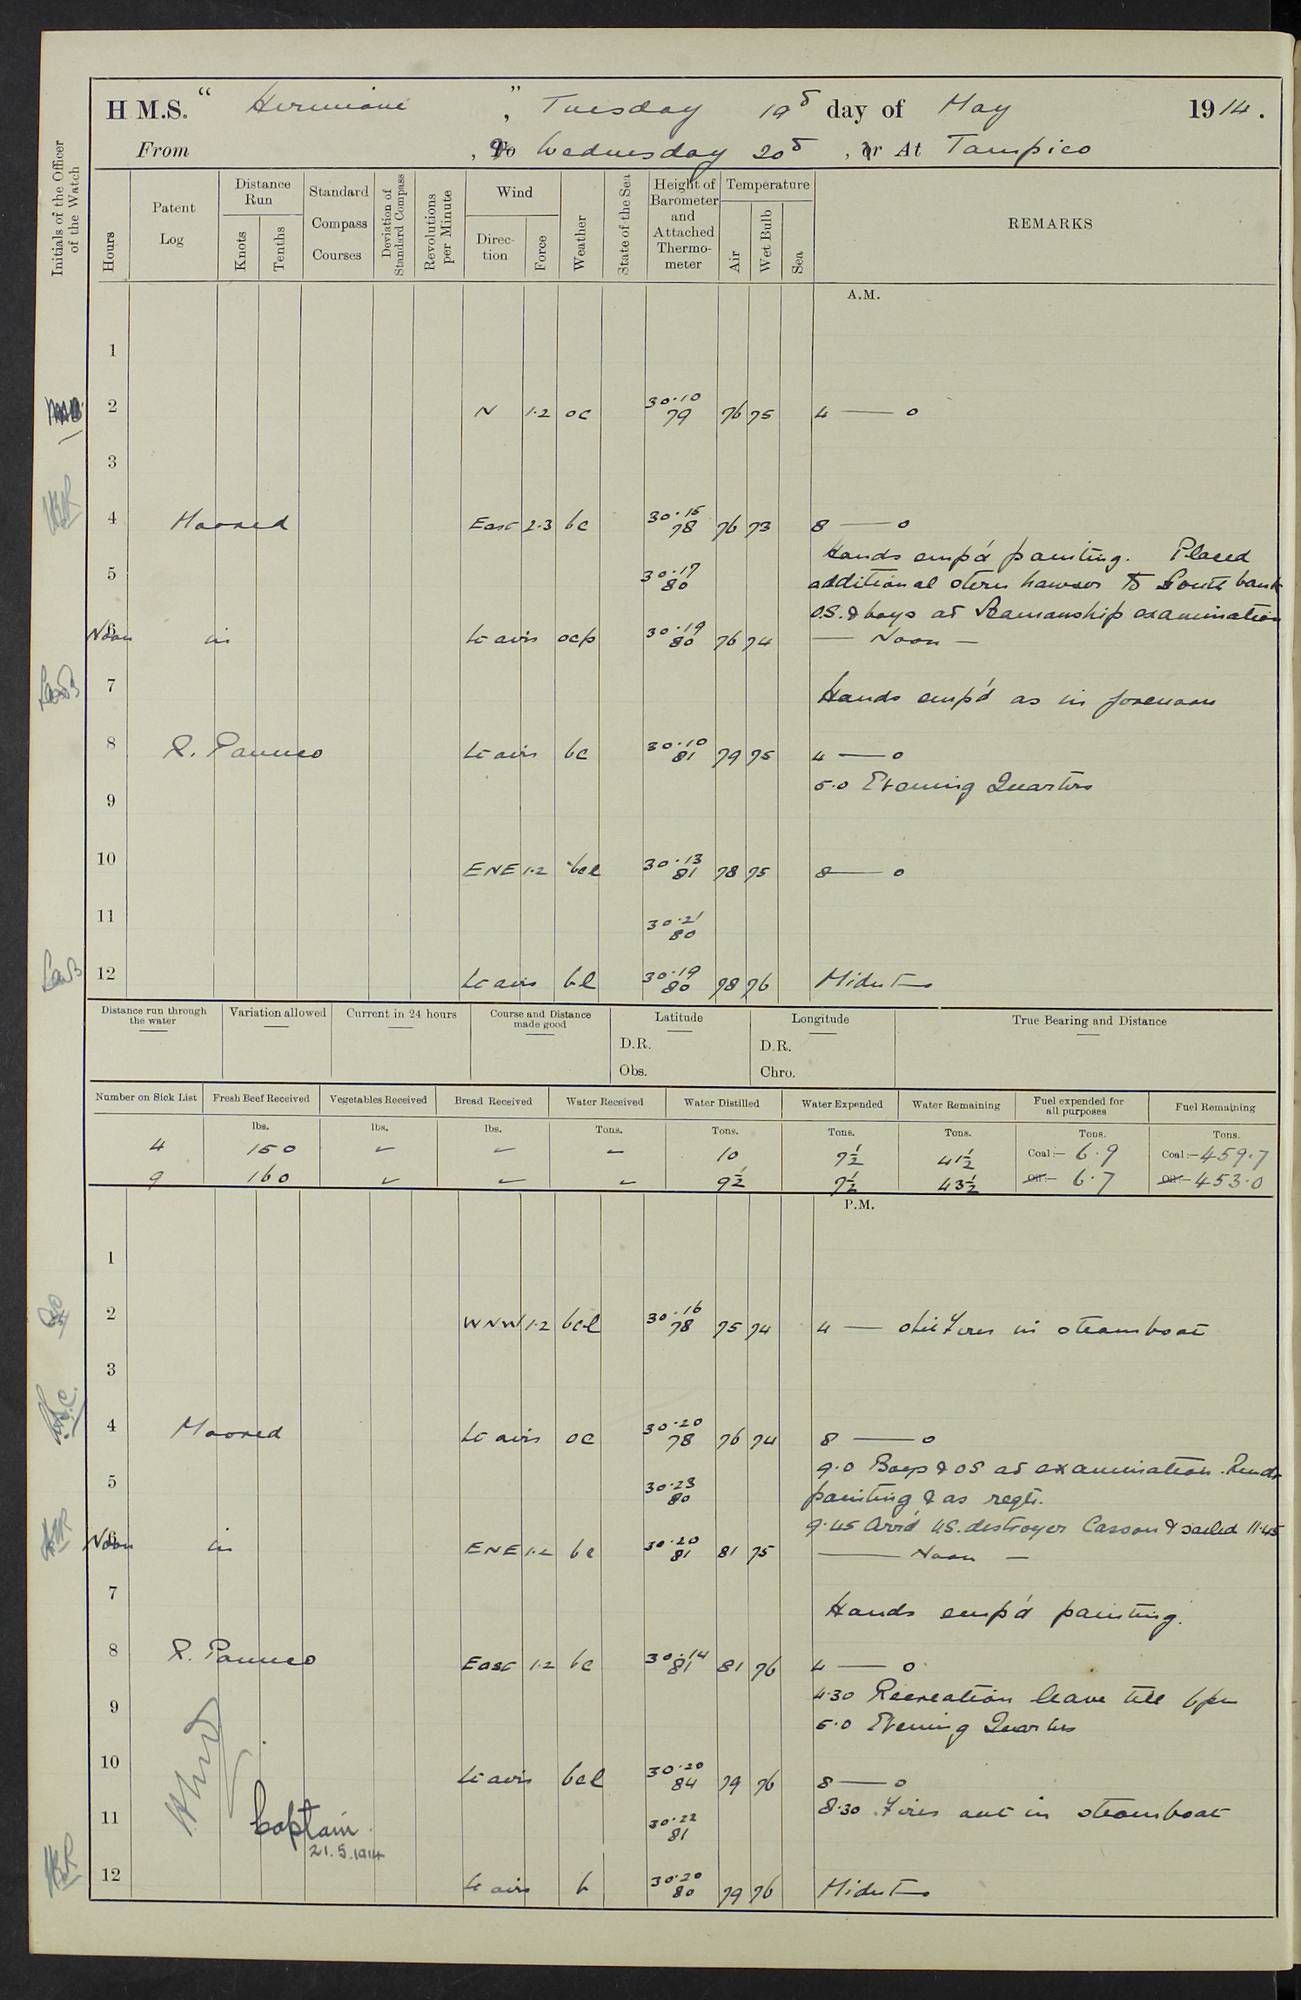 H.M.S. "Hermione", Tuesday 19th day of May 1914.
From , To Wednesday 20th , or At Tampico
Initials of the Officer of the Watch
Hours
Patent Log
Distance Run
Knots
Tenths
Standard Compass Courses
Deviation of Standard Compass
Revolutions per Minute
Wind
Direction
Force
Weather
State of the Sea
Height of Barometer and Attached Thermometer
Temperature
Air
Wet Bulb
Sea
REMARKS
A.M.
1
2 N 1·2 oc 30·10 79 76 75 4 — o
3
4 Moored East 2·3 bc 30·15 78 76 73 8 — o
Hands emp'd painting. Placed
5 30·17 80 additional stern hawser to South bank
O.S. & boys at Seamanship examination
6 Noon in Lt airs ocp 30·19 80 76 74 — Noon —
7 Hands emp'd as in forenoon
8 R. Panuco Lt airs bc 30·10 81 79 75 4 — o
5·0 Evening Quarters
9
10 ENE 1·2 bcl 30·13 81 78 75 8 — o
11 30·21 80
12 Lt airs bl 30·19 80 78 76 Midnt
Distance run through the water
Variation allowed
Current in 24 hours
Course and Distance made good
Latitude
D.R.
Obs.
Longitude
D.R.
Chro.
True Bearing and Distance
Number on Sick List Fresh Beef Received Vegetables Received Bread Received Water Received Water Distilled Water Expended Water Remaining Fuel expended for all purposes Fuel Remaining
lbs. lbs. lbs. Tons. Tons. Tons. Tons. Tons. Tons.
4 150 – – – 10 7½ 41½ Coal:– 6·9 Coal:– 459·7
9 160 – – – 9½ 7½ 43½ Oil:– 6·7 Oil:– 453·0
P.M.
1
2 WNW 1·2 bcl 30·16 78 75 74 4 — o Lit Fires in steamboat
3
4 Moored Lt airs oc 30·20 78 76 74 8 — o
9·0 Boys & OS at examination. Hands
5 30·23 80 painting & as reqte.
9·45 Arr'd U.S. destroyer Casson & sailed 11·45
6 Noon in ENE 1·2 bc 30·20 81 81 75 — Noon —
7 Hands emp'd painting.
8 R. Panuco East 1·2 bc 30·14 81 81 76 4 — o
4·30 Recreation leave till 6pm
9 5·0 Evening Quarters
10 Lt airs bcl 30·20 84 79 76 8 — o
8·30 Fires out in steamboat
11 Captain 30·22 81
21.5.1914
12 Lt airs b 30·20 80 79 76 Midnt